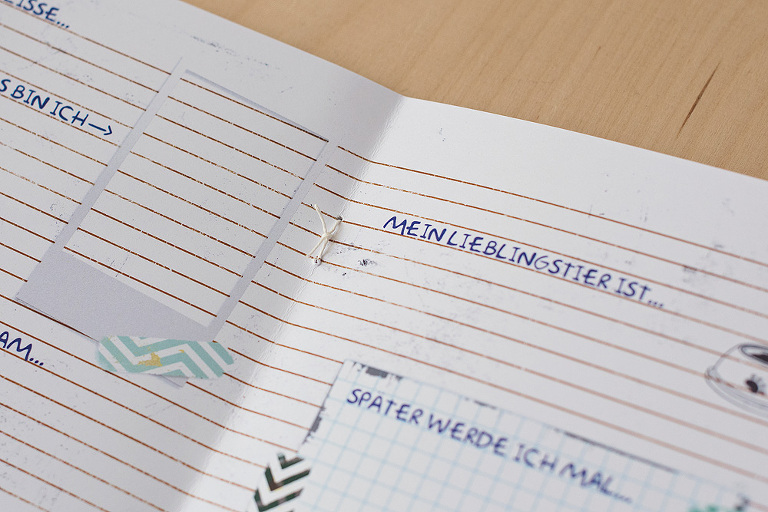 BIN ICH →
MEIN LIEBLINGSTIER IST...
SPÄTER WERDE ICH MAL...